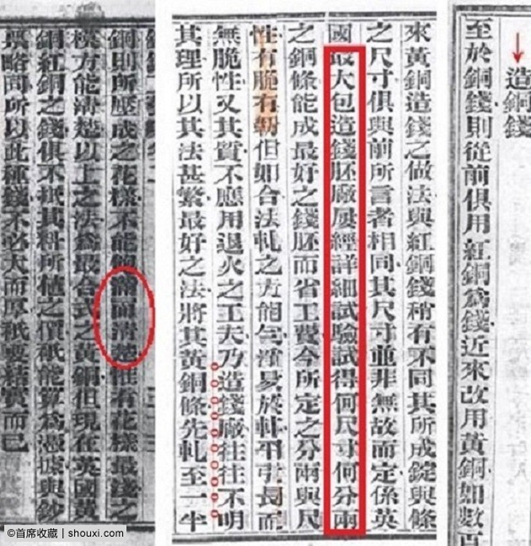 造銅錢
至於銅錢則從前俱用紅銅爲錢近來改用黃銅如數百
來黃銅造錢之做法與紅銅錢稍有不同其所成錠與條
之尺寸俱與前所言者相同其尺寸並非無故而定係英
國最大包造錢胚廠屢經詳細試驗試得何尺寸何分兩
之銅條能成最好之錢胚而省工費今所定之分兩與民
性有脆有韌但如合法軋之方能勻易於軋平引長而
無脆性又其質不應用退火之工夫乃造錢廠往往不明
其理所以其法甚繁最好之法將其黃銅條先軋至一半
銅則所壓成之花樣不能滿而清楚惟有花樣最淺之
模方能清楚以上之法爲最合式之黃銅但現在英國黃
銅紅銅之錢俱不抵其料所值之價祇能算爲憑據與鈔
票略同所以此種錢不必大而厚祇要結實而已
©首席收藏 | shouxi.com